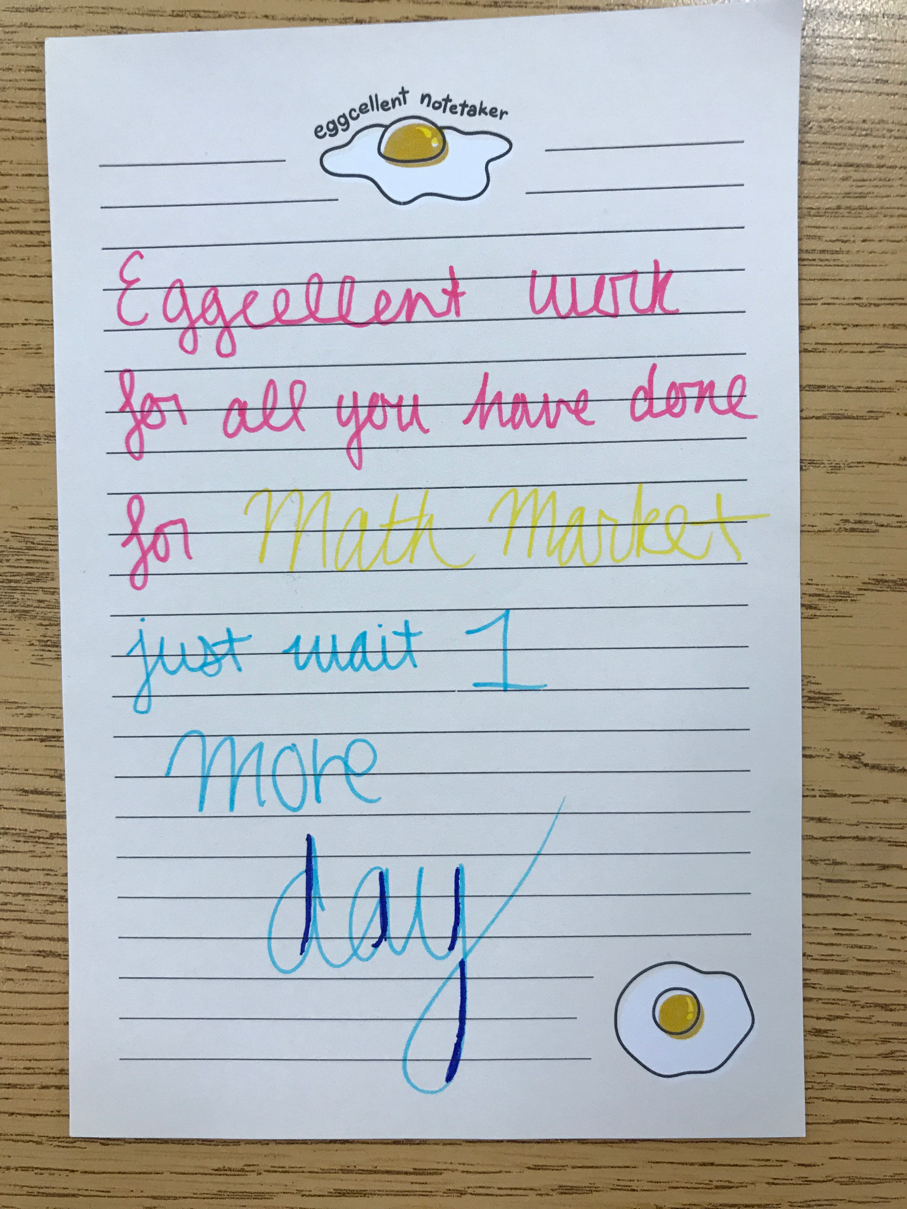 eggcellent notetaker
Eggcellent work
for all you have done
for Math Market
just wait 1
more
day